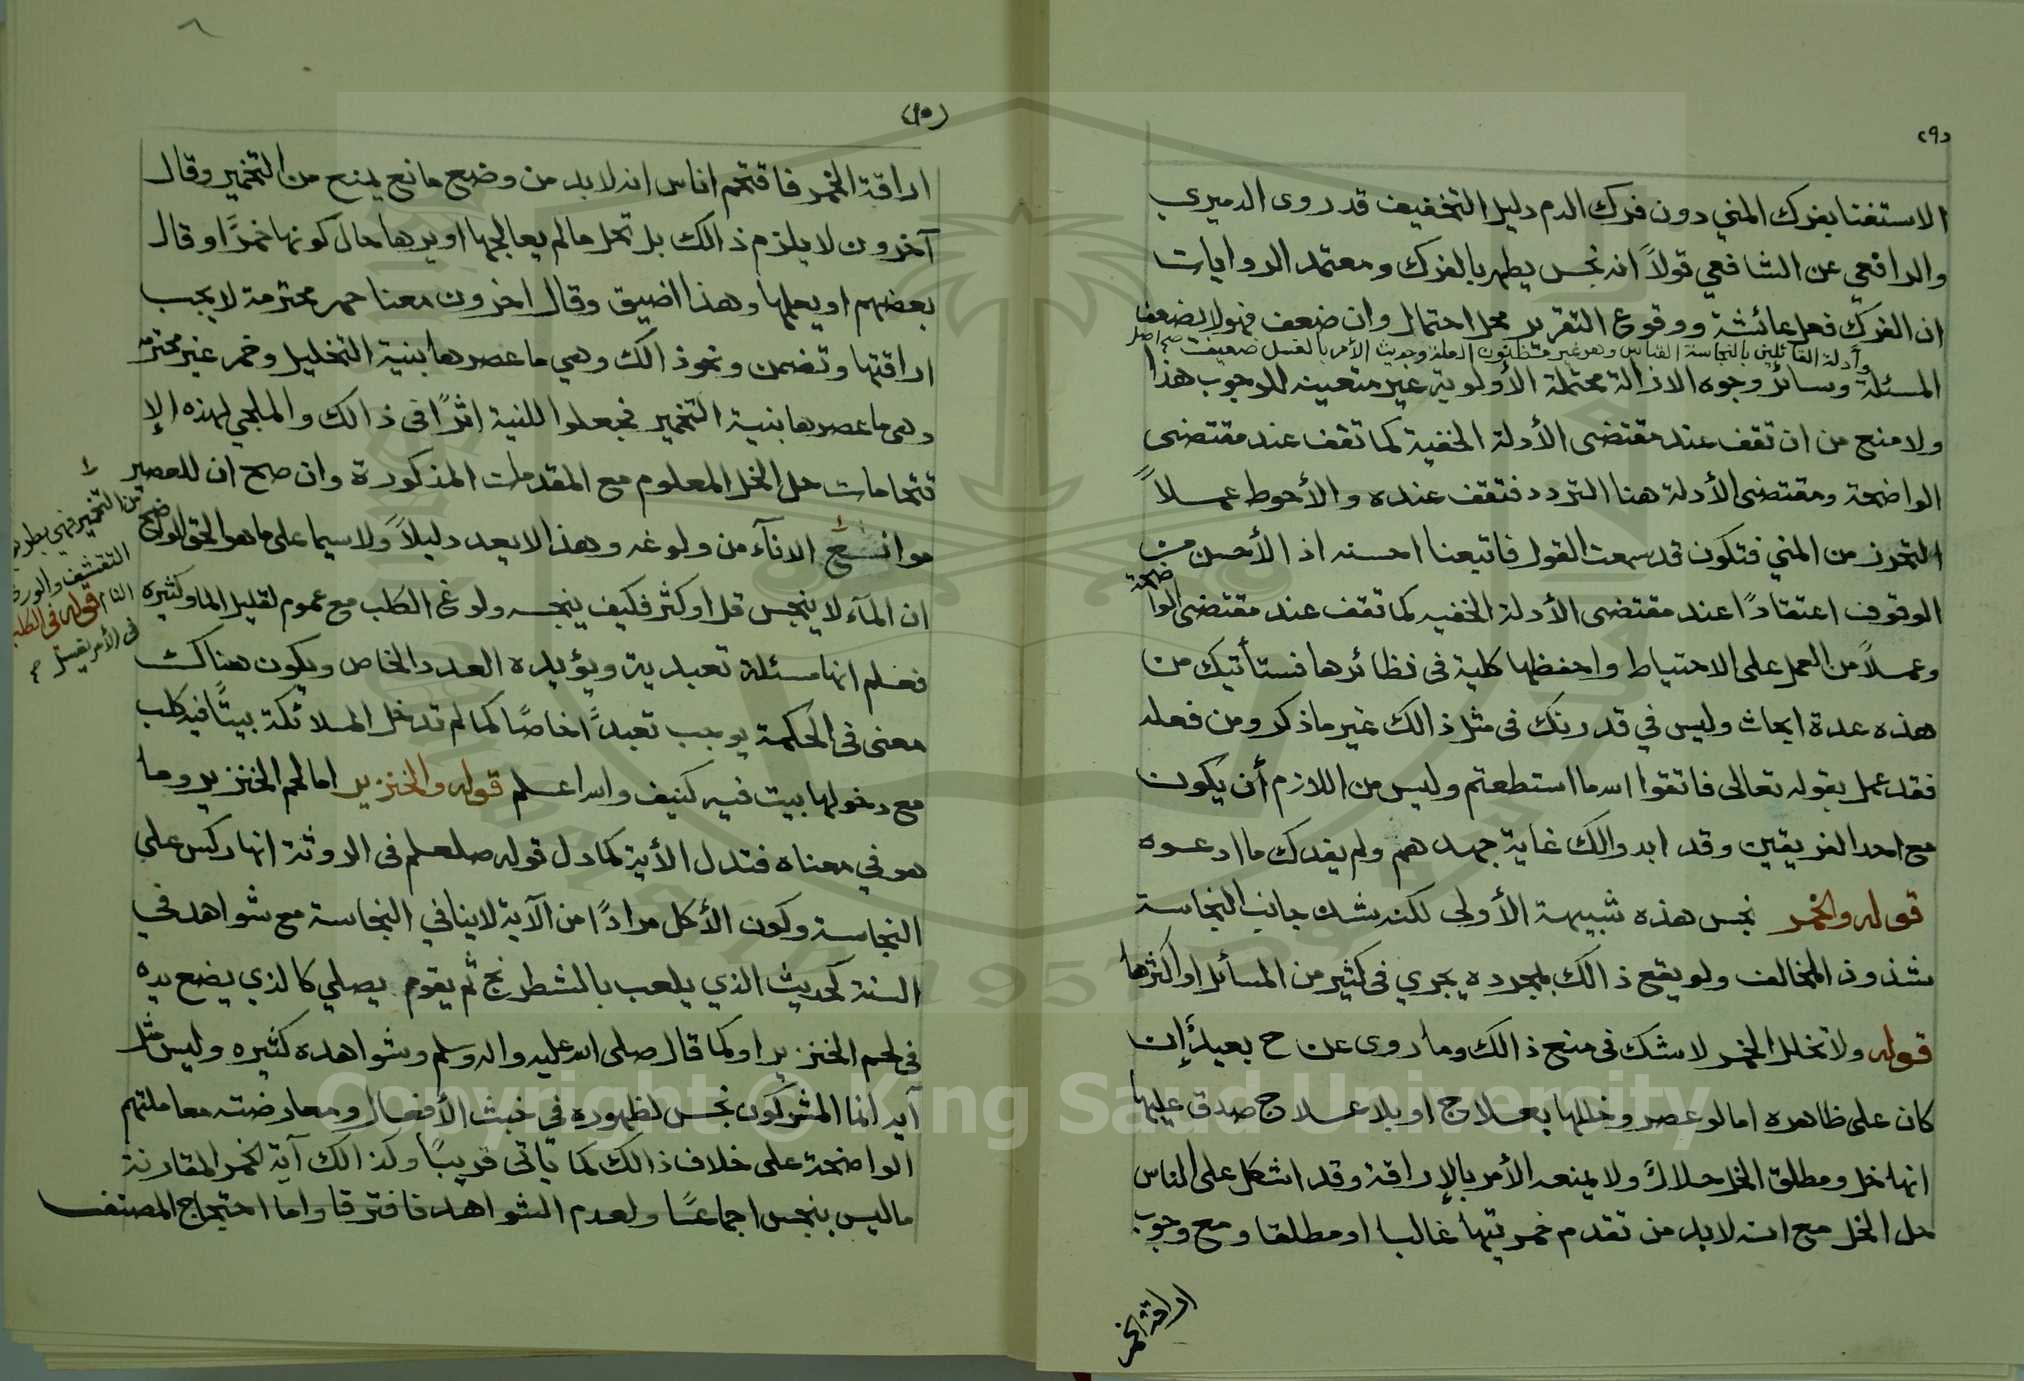 ٢٩د
الاستغنا بفرك المني دون فرك الدم دليل التخفيف قد روى الدميري
والرافعي عن الشافعي قولاً انه نجس يطهر بالفرك ومعتمد الروايات
ان الفرك فعل عائشة ووقوع التقرير محل احتمال وان ضعف فهو لا يضعف
وأدلة القائلين بالنجاسة القياس وهو غير العلة وحديث الأمر بالغسل ضعيف صح اصل
المسئلة وسائر وجوه الازالة محتملة الأولوية غير متعينه للوجوب هذا
ولا منع من ان تقف عند مقتضى الأدلة الخفية كما تقف عند مقتضى
الواضحة ومقتضى الأدلة هنا التردد فتقف عنده والأحوط عملاً
التحرز من المني فتكون قد سمعت القول فاتبعنا احسنه اذ الأحسن
الوقوف اعتقادًا عند مقتضى الأدلة الخفيه كما تقف عند مقتضى الواضحة
وعملاً من العمل على الاحتياط واحفظها كلية فى نظائرها فستأتيك من
هذه عدة ابحاث وليس في قدرتك فى مثل ذالك غير ما ذكر ومن فعله
فقد عمل بقوله تعالى فاتقوا الله ما استطعتم وليس من اللازم أن يكون
مع احد الفريقين وقد ابدوا لك غاية جهدهم ولم يفدك ما ادعوه
قوله والخمر نجس هذه شبيهة الأولى لكنه شك جانب النجاسة
شذوذ المخالف ولو يقع ذالك بمجرده يجري فى كثير من المسائل او اكثرها
قوله ولا تخلل الخمر لا شك فى منع ذالك وما روى عن ح بعيد إن
كان على ظاهره اما لو عصر وخللها بعلاج او بلا علاج صدق عليها
انها خل ومطلق الخل حلال ولا يمنعه الأمر بالإراقة وقد اشكل على الناس
حل الخل مع انه لا بد من تقدم خمريتها غالبا او مطلقا ومع وجوب
اراقة الخمر
(١٥)
اراقة الخمر فاقتحم اناس انه لا بد من وضع مانع يمنع من التخمير وقال
آخرون لا يلزم ذالك بل تحل ما لم يعالجها او يرها حال كونها خمرًا وقال
بعضهم او يعلمها وهذا اضيق وقال اخرون معنا خمر محترمة لا يجب
اراقتها وتضمن ونحو ذالك وهي ما عصرها بنية التخليل وخمر غير محترمه
وهى ما عصرها بنية التخمير فجعلوا للنية اثرًا فى ذالك والملجي لهذه الإ
قتحامات حل الخل المعلوم مع المقدمات المذكورة وان صح ان للعصير
موانع
من التخمير فهي بطريق
التقشف والورع
التام قوله فى الكلب
فى الأمر بغسل
الانآء من ولوغه وهذا لا يعد دليلاً ولا سيما على ما هو الحق الواضح
ان المآء لا ينجس قل او كثر فكيف ينجسه ولوغ الكلب مع عموم لقليل الما وكثيره
فعلم انها مسئلة تعبدية ويؤيده العدد الخاص ويكون هناك
معنى فى الحكمة يوجب تعبدًا خاصًا كما لم تدخل الملائكة بيتًا فيه كلب
مع دخولها بيت فيه كنيف والله اعلم قوله والخنزير اما لحم الخنزير وما
هو في معناه فتدل الأية كما دل قوله صلعلم فى الروثة انها ركس على
النجاسة وكون الأكل مرادًا من الآية لا ينافي النجاسة مع شواهد في
السنة كحديث الذي يلعب بالشطرنج ثم يقوم يصلي كالذي يضع يده
فى لحم الخنزير او كما قال صلى الله عليه واله وسلم وشواهده كثيره وليس مثل
آية انما المشركون نجس لظهوره فى خبث الأفعال ومعارضته معاملتهم
الواضحة على خلاف ذالك كما يأتى قريبًا وكذالك آية الخمر المقارنة
ما ليس بنجس اجماعًا ولعدم الشواهد فافترقا واما احتجاج المصنف
Copyright © King Saud University
1957